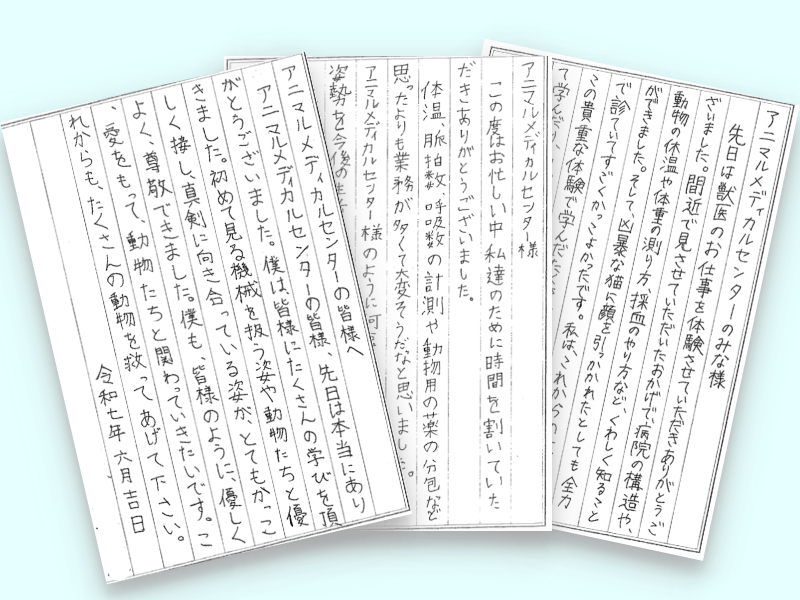 アニマルメディカルセンターのみな様
先日は獣医のお仕事を体験させていただきありがとうご
ざいました。間近で見させていただいたおかげで、病院の構造や、
動物の体温や体重の測り方、採血のやり方など、くわしく知ること
ができました。そして、凶暴な猫に顔を引っかかれたとしても全力
で診ていてすごくかっこよかったです。私は、これからの
この貴重な体験で学んだ
て学んだ
アニマルメディカルセンター様
この度はお忙しい中私達のために時間を割いていた
だきありがとうございました。
体温、脈拍数、呼吸数の計測や動物用の薬の分包など
思ったよりも業務が多くて大変そうだなと思いました。
アニマルメディカルセンター様のように
姿勢を今後の
アニマルメディカルセンターの皆様へ
アニマルメディカルセンターの皆様、先日は本当にあり
がとうございました。僕は、皆様にたくさんの学びを頂
きました。初めて見る機械を扱う姿や動物たちと優
しく接し、真剣に向き合っている姿が、とてもかっこ
よく、尊敬できました。僕も、皆様のように、優しく
、愛をもって、動物たちと関わっていきたいです。こ
れからも、たくさんの動物を救ってあげて下さい。
令和七年六月吉日